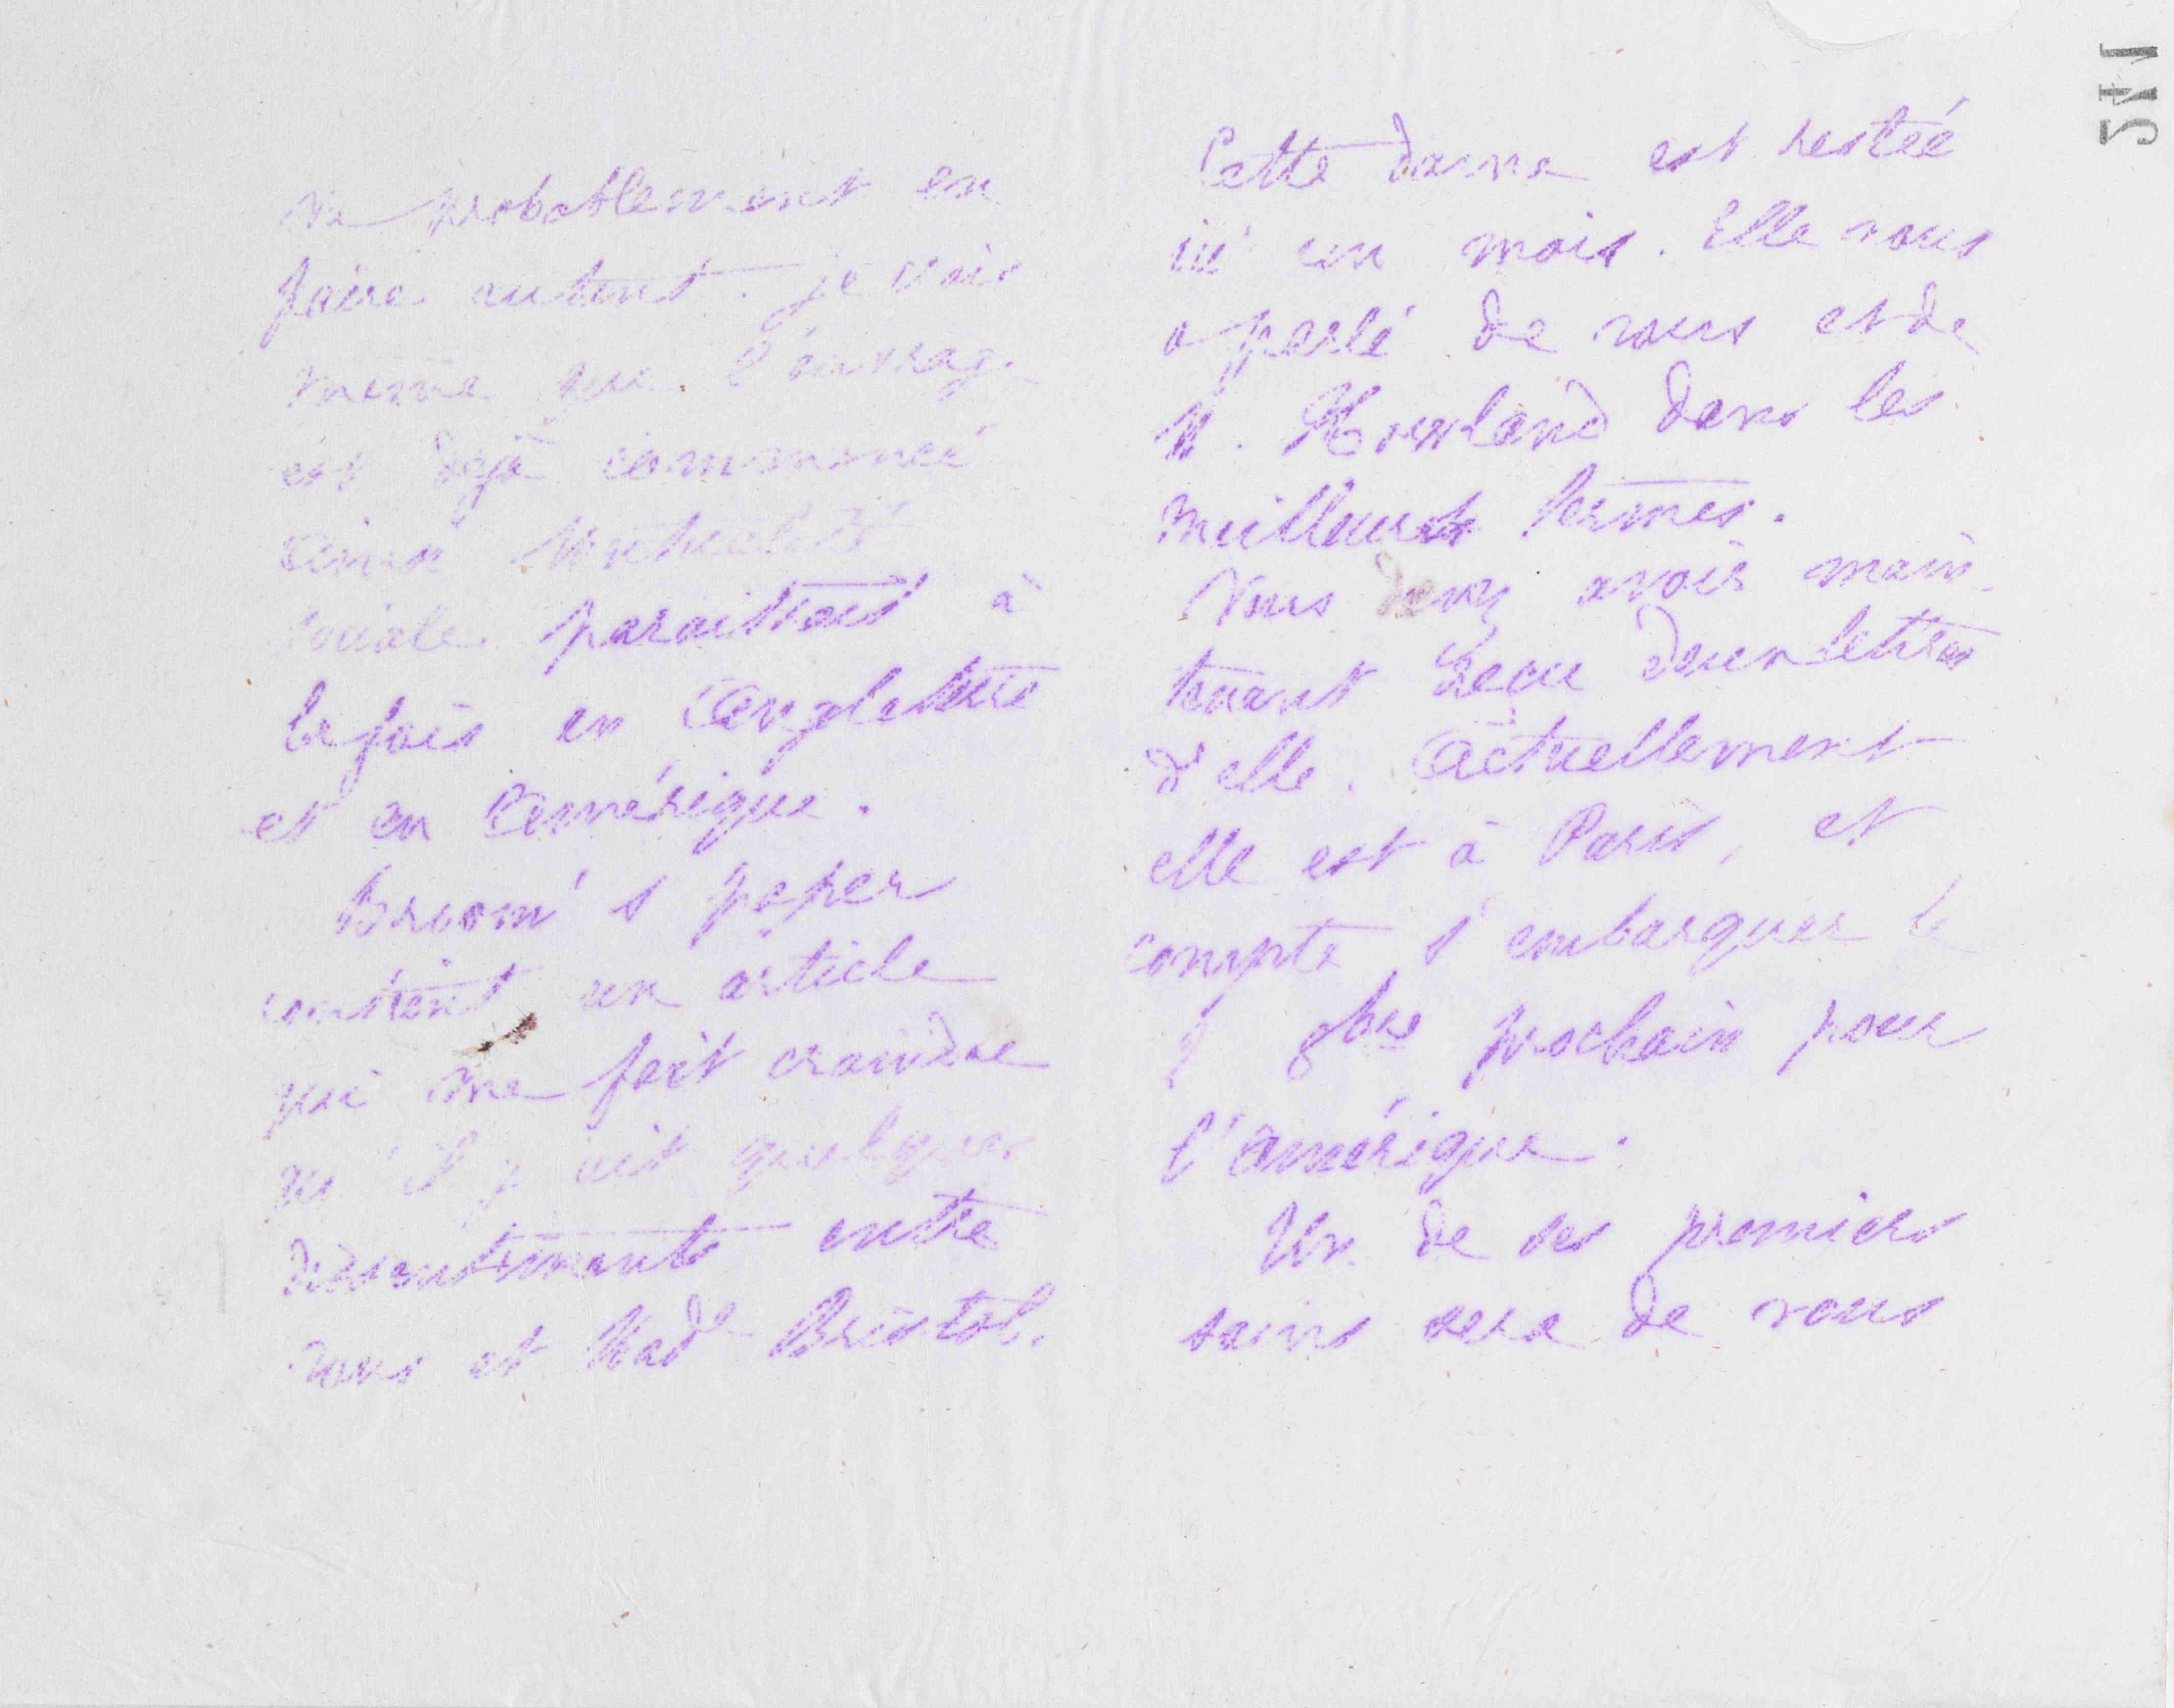 va probablement en
faire autant. je crois
même que l'ouvrage
est déjà commencé
Ainsi Mutualité
Sociale paraitrait à
la fois en Angleterre
et en Amérique.
Broom's paper
contient un article
qui me fait craindre
qu'il y ait quelques
dissentiments entre
vous et Made Bristol.
Cette dame est restée
ici un mois. Elle nous
a parlé de vous et de
M. Howland dans les
meilleurs termes.
Vous devez avoir main-
tenant reçu deux lettres
d'elle. Actuellement
elle est à Paris, et
compte s'embarquer le
8bre prochain pour
l'Amérique.
Un de ses premiers
soins sera de vous
541